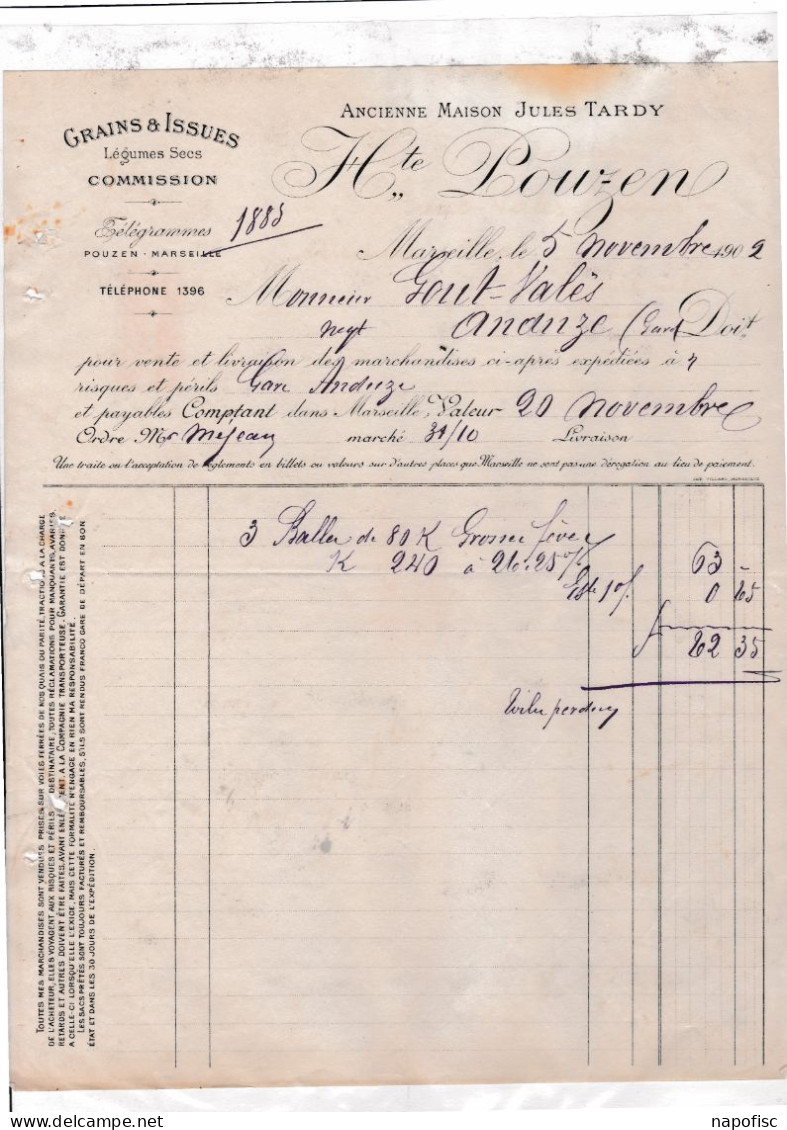 ANCIENNE MAISON JULES TARDY
Hte Pouzen
GRAINS & ISSUES
Légumes Secs
COMMISSION
Télégrammes
POUZEN - MARSEILLE
TÉLÉPHONE 1396
1885
Marseille, le 5 Novembre 1902
Monsieur Gout-Valès
Negt Anduze (Gard) Doit
pour vente et livraison des marchandises ci-après expédiées à
risques et périls Gare Anduze
et payables Comptant dans Marseille, Valeur 20 Novembre
Ordre Mr Mejean marché 31/10 Livraison
Une traite ou l'acceptation de règlements en billets ou valeurs sur d'autres places que Marseille ne sont pas une dérogation au lieu de paiement.
3 Balles de 80 K Grosses fèves
K 240 à 26.25 % 63 -
Este 1 % 0 65
62 35
Toiles perdues
TOUTES MES MARCHANDISES SONT VENDUES PRISES SUR VOIES FERRÉES DE NOS QUAIS OU PARITÉ, TRACTION À LA CHARGE
DE L'ACHETEUR, ELLES VOYAGENT AUX RISQUES ET PÉRILS DESTINATAIRE, TOUTES RÉCLAMATIONS POUR MANQUANTS, AVARIES,
RETARDS ET AUTRES DOIVENT ÊTRE FAITES, AVANT ENLÈVEMENT, A LA COMPAGNIE TRANSPORTEUSE. GARANTIE EST DONNÉE
A CELLE-CI LORSQU'ELLE L'EXIGE, MAIS CETTE FORMALITÉ N'ENGAGE EN RIEN MA RESPONSABILITÉ.
LES SACS PRÊTÉS SONT TOUJOURS FACTURÉS ET REMBOURSABLES, S'ILS SONT RENDUS FRANCO GARE DE DÉPART EN BON
ÉTAT ET DANS LES 30 JOURS DE L'EXPÉDITION.
napofisc